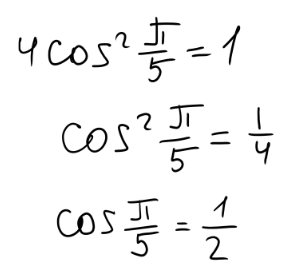 4cos²π/5=1
cos²π/5=1/4
cosπ/5=1/2